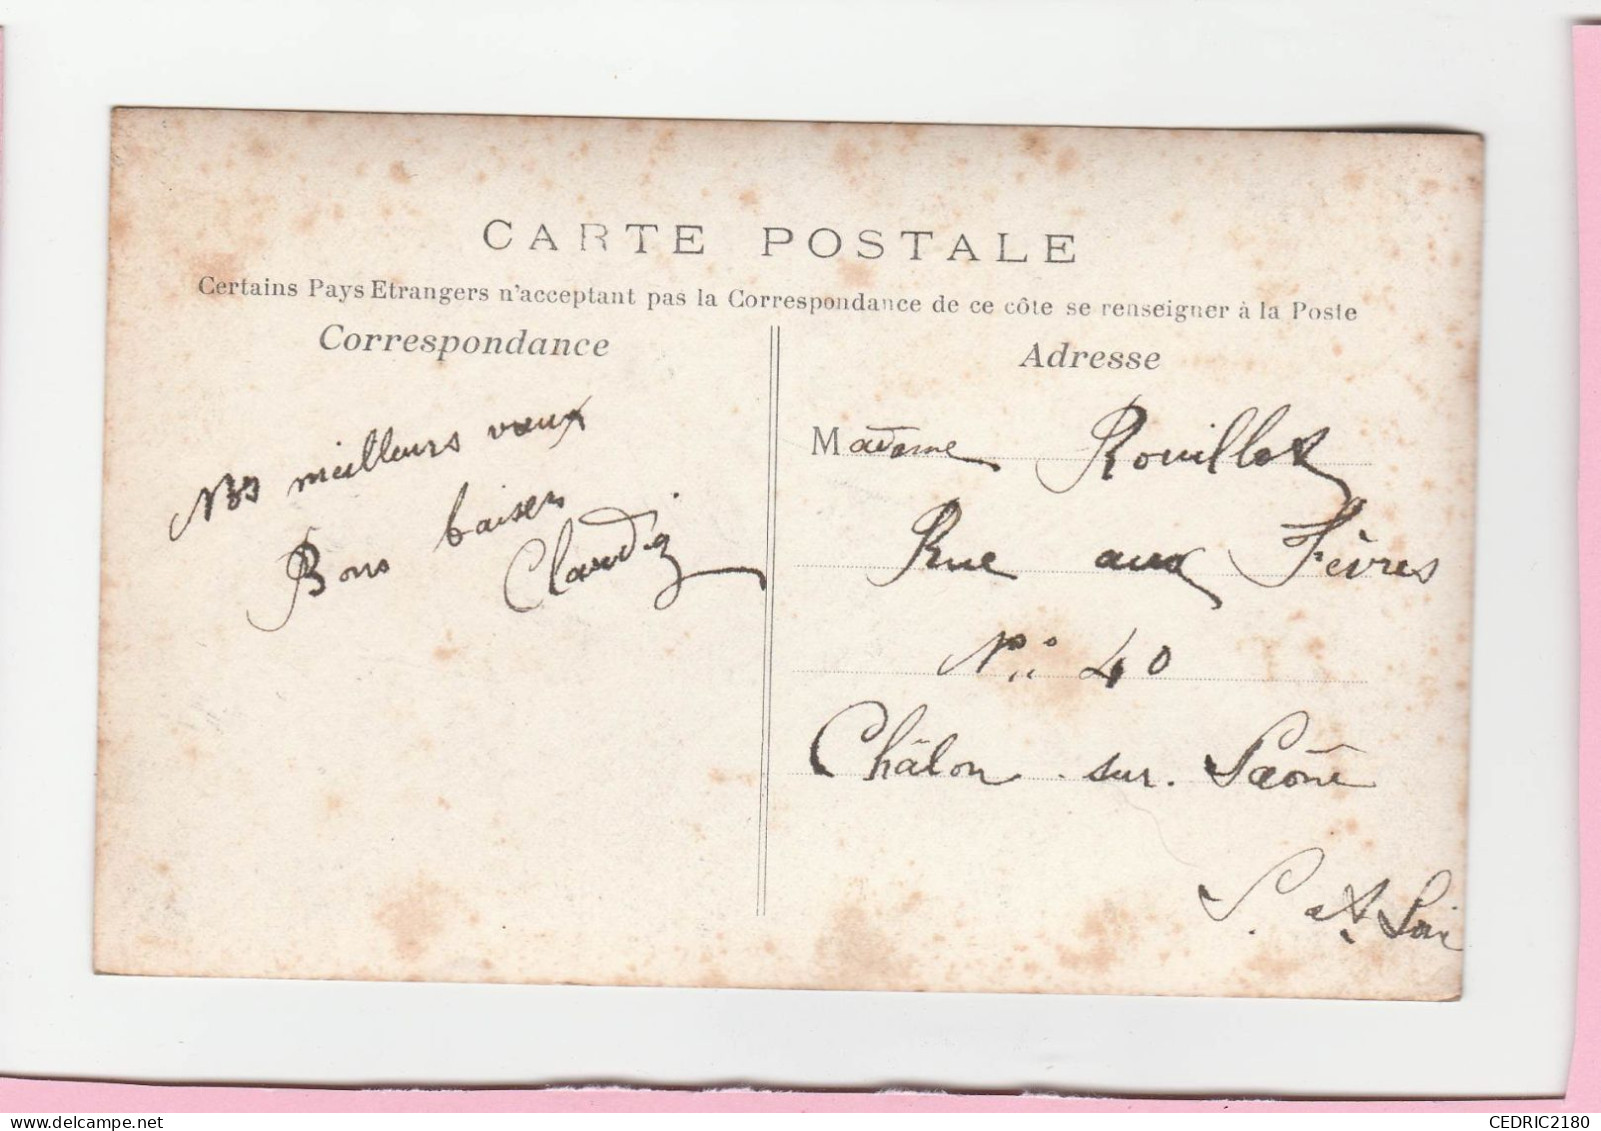 CARTE POSTALE
Certains Pays Etrangers n'acceptant pas la Correspondance de ce côte se renseigner à la Poste
Correspondance
Adresse
Nos meilleurs vœux
Bons baisers
Madame Rouillot
Rue aux Fèvres
N° 40
Châlon sur Saône
S. et Loire
CEDRIC2180